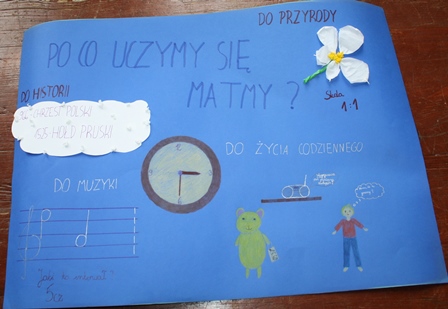 DO PRZYRODY
PO CO UCZYMY SIĘ
MATMY ?
Skala
1:1
DO HISTORII
CHRZEST POLSKI
1525 HOŁD PRUSKI
DO ŻYCIA CODZIENNEGO
DO MUZYKI